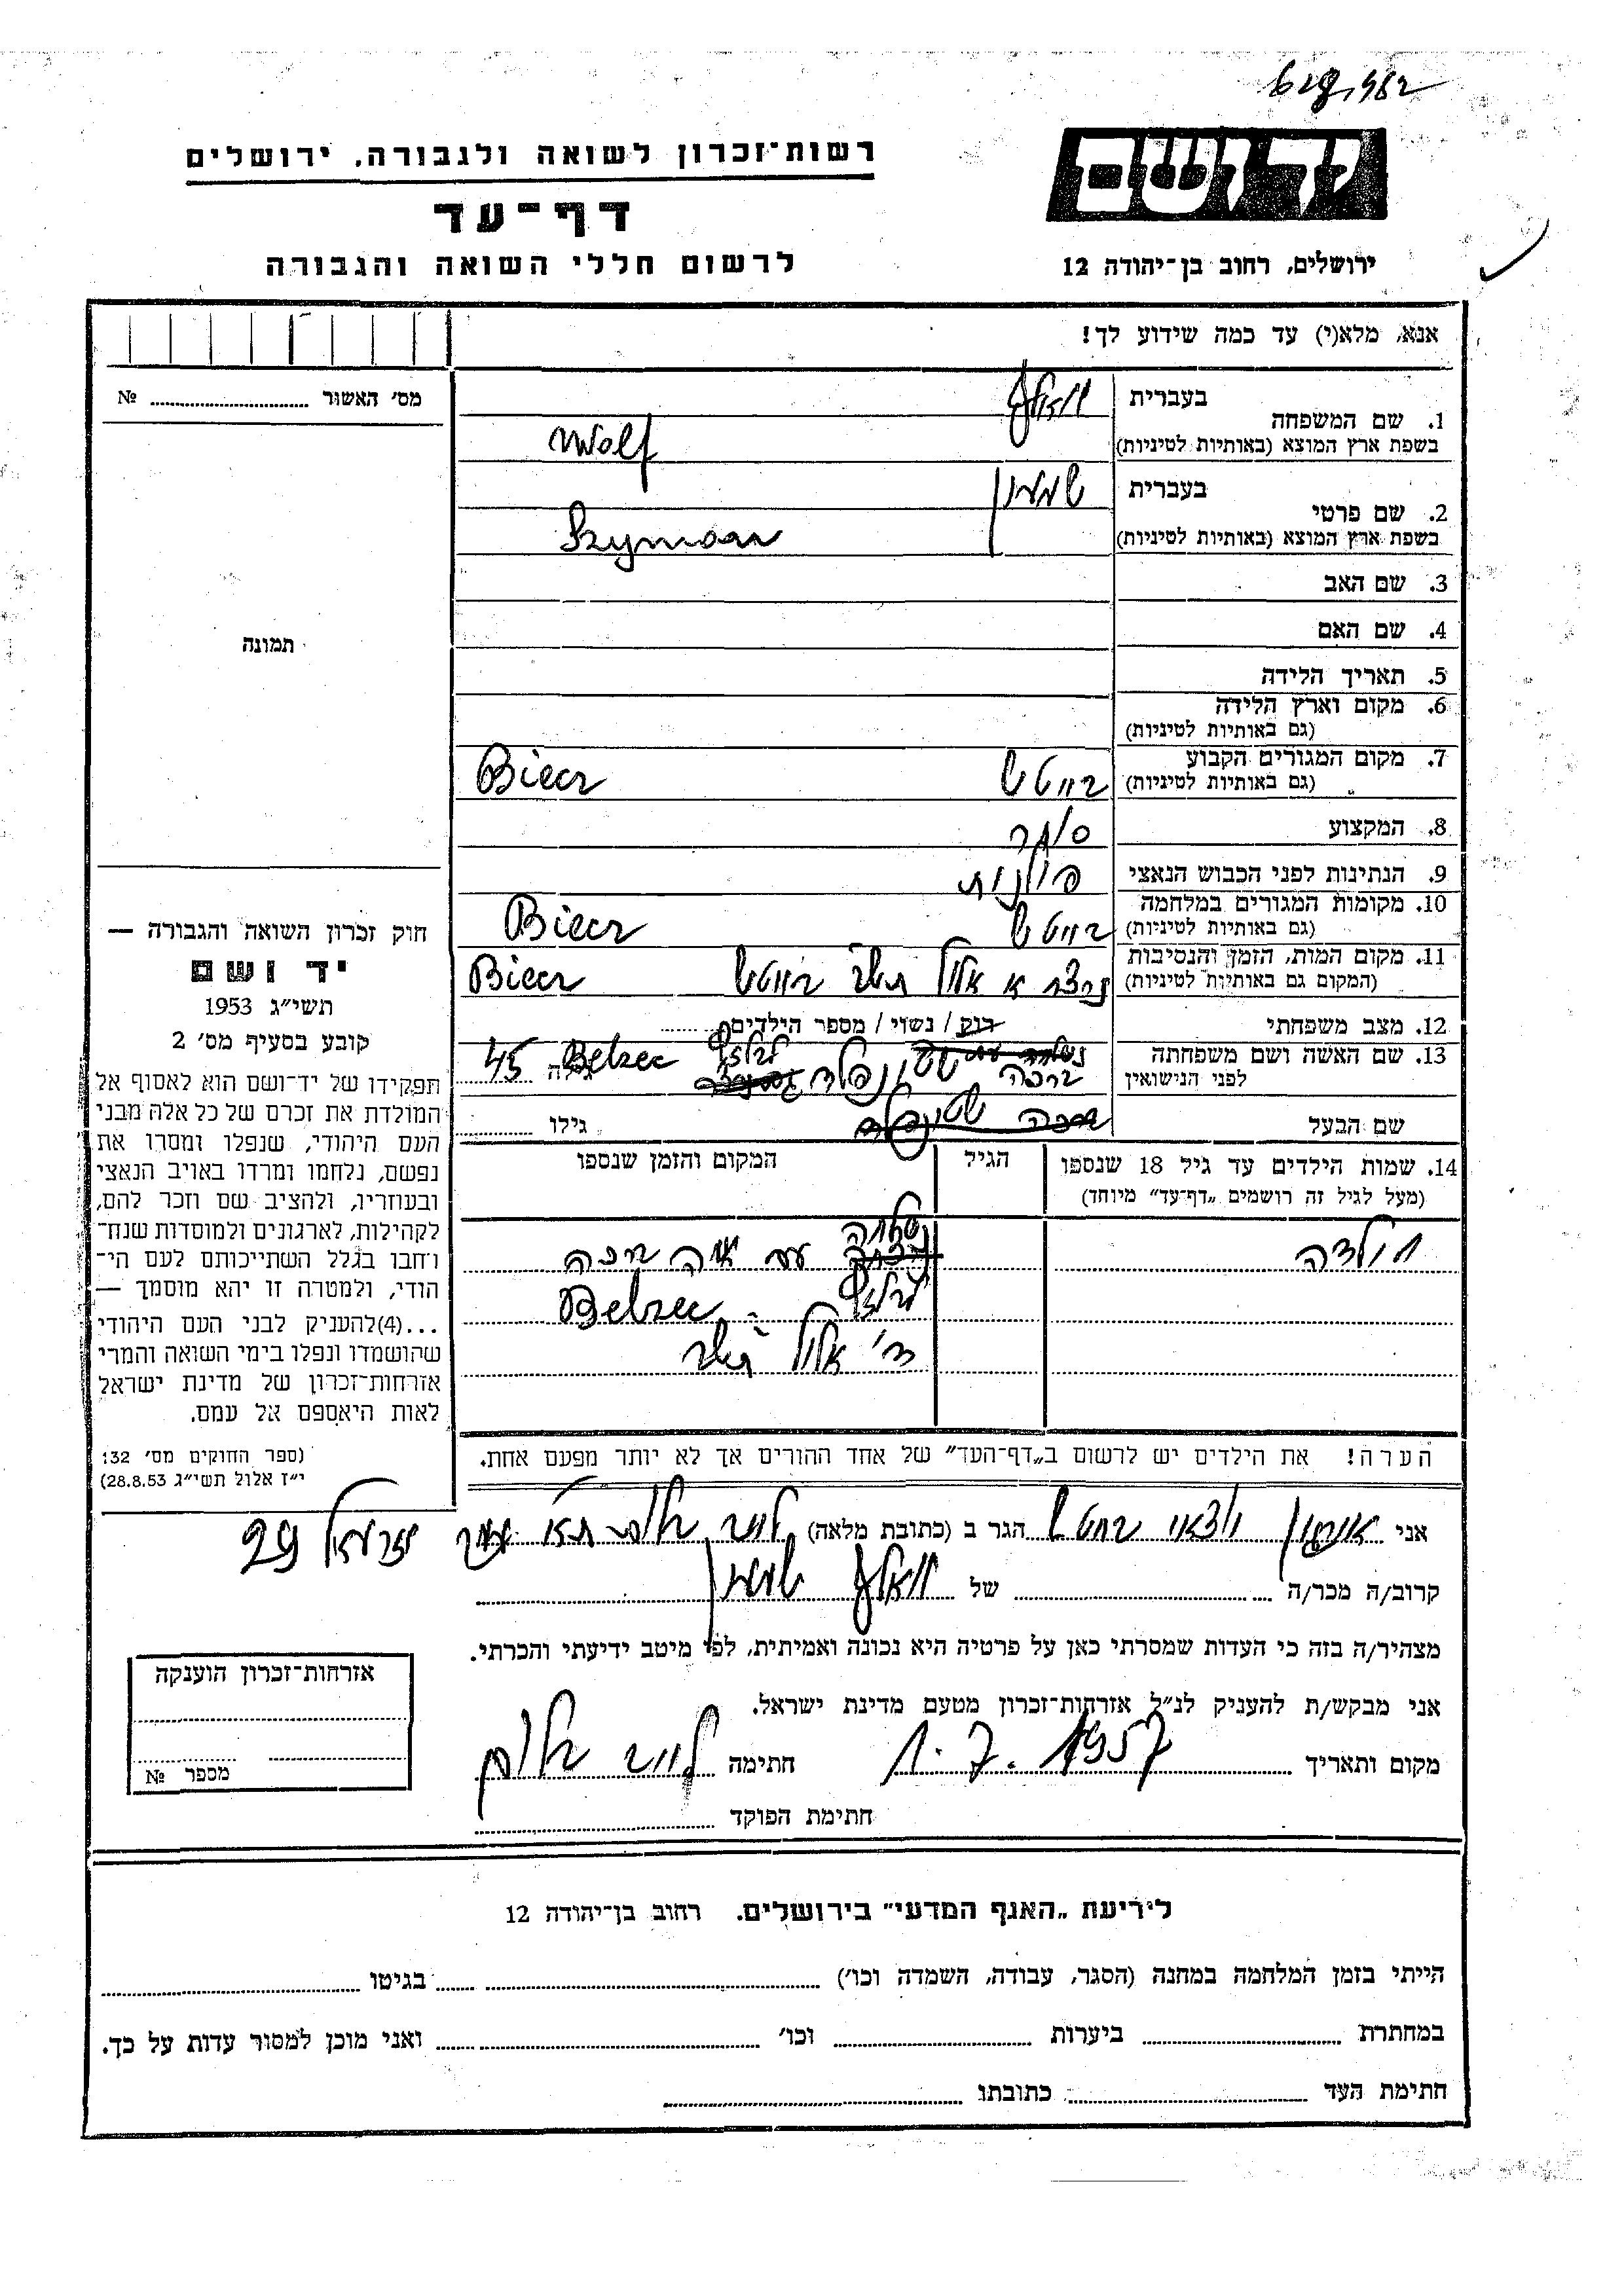 רשות־זכרון לשואה ולגבורה, ירושלים
דף־עד
לרשום חללי השואה והגבורה
יד ושם
ירושלים, רחוב בן־יהודה 12
אנא, מלא(י) עד כמה שידוע לך!
מס׳ האשור № 
1. שם המשפחה בעברית וואלף
בשפת ארץ המוצא (באותיות לטיניות) Wolf
2. שם פרטי בעברית שמעון
בשפת ארץ המוצא (באותיות לטיניות) Szymon
3. שם האב
4. שם האם
5. תאריך הלידה
6. מקום וארץ הלידה
(גם באותיות לטיניות)
7. מקום המגורים הקבוע
(גם באותיות לטיניות) Biecz
8. המקצוע סוחר
9. הנתינות לפני הכבוש הנאצי פולנית
10. מקומות המגורים במלחמה
(גם באותיות לטיניות) Biecz
11. מקום המות, הזמן והנסיבות
(המקום גם באותיות לטיניות) אלול Biecz
12. מצב משפחתי רוק / נשוי / מספר הילדים
13. שם האשה ושם משפחתה
לפני הנישואין ברכה Belzec גילה 45
שם הבעל גילו
14. שמות הילדים עד גיל 18 שנספו הגיל המקום והזמן שנספו
(מעל לגיל זה רושמים „דף־עד״ מיוחד)
הולדה עם
Belzec
אלול
הערה! את הילדים יש לרשום ב„דף־העד״ של אחד ההורים אך לא יותר מפעם אחת.
תמונה
חוק זכרון השואה והגבורה —
יד ושם
תשי״ג 1953
קובע בסעיף מס׳ 2
תפקידו של יד־ושם הוא לאסוף אל
המולדת את זכרם של כל אלה מבני
העם היהודי, שנפלו ומסרו את
נפשם, נלחמו ומרדו באויב הנאצי
ובעוזריו, ולהציב שם וזכר להם,
לקהילות, לארגונים ולמוסדות שנח־
רחבו בגלל השתייכותם לעם הי־
הודי, ולמטרה זו יהא מוסמך —
...(4)להעניק לבני העם היהודי
שהושמדו ונפלו בימי השואה והמרי
אזרחות־זכרון של מדינת ישראל
לאות היאספם אל עמם.
(ספר החוקים מס׳ 132
י״ז אלול תשי״ג 28.8.53)
אני ארגון יוצאי הגר ב (כתובת מלאה) יזרעאל 29
קרוב/ה מכר/ה של וואלף שמעון
מצהיר/ה בזה כי העדות שמסרתי כאן על פרטיה היא נכונה ואמיתית, לפי מיטב ידיעתי והכרתי.
אני מבקש/ת להעניק לנ״ל אזרחות־זכרון מטעם מדינת ישראל.
מקום ותאריך 1.7.1957 חתימה
חתימת הפוקד
אזרחות־זכרון הוענקה
מספר №
לידיעת „האגף המדעי״ בירושלים. רחוב בן־יהודה 12
הייתי בזמן המלחמה במחנה (הסגר, עבודה, השמדה וכו׳) בגיטו
במחתרת ביערות וכו׳ ואני מוכן למסור עדות על כך.
חתימת העד כתובתו